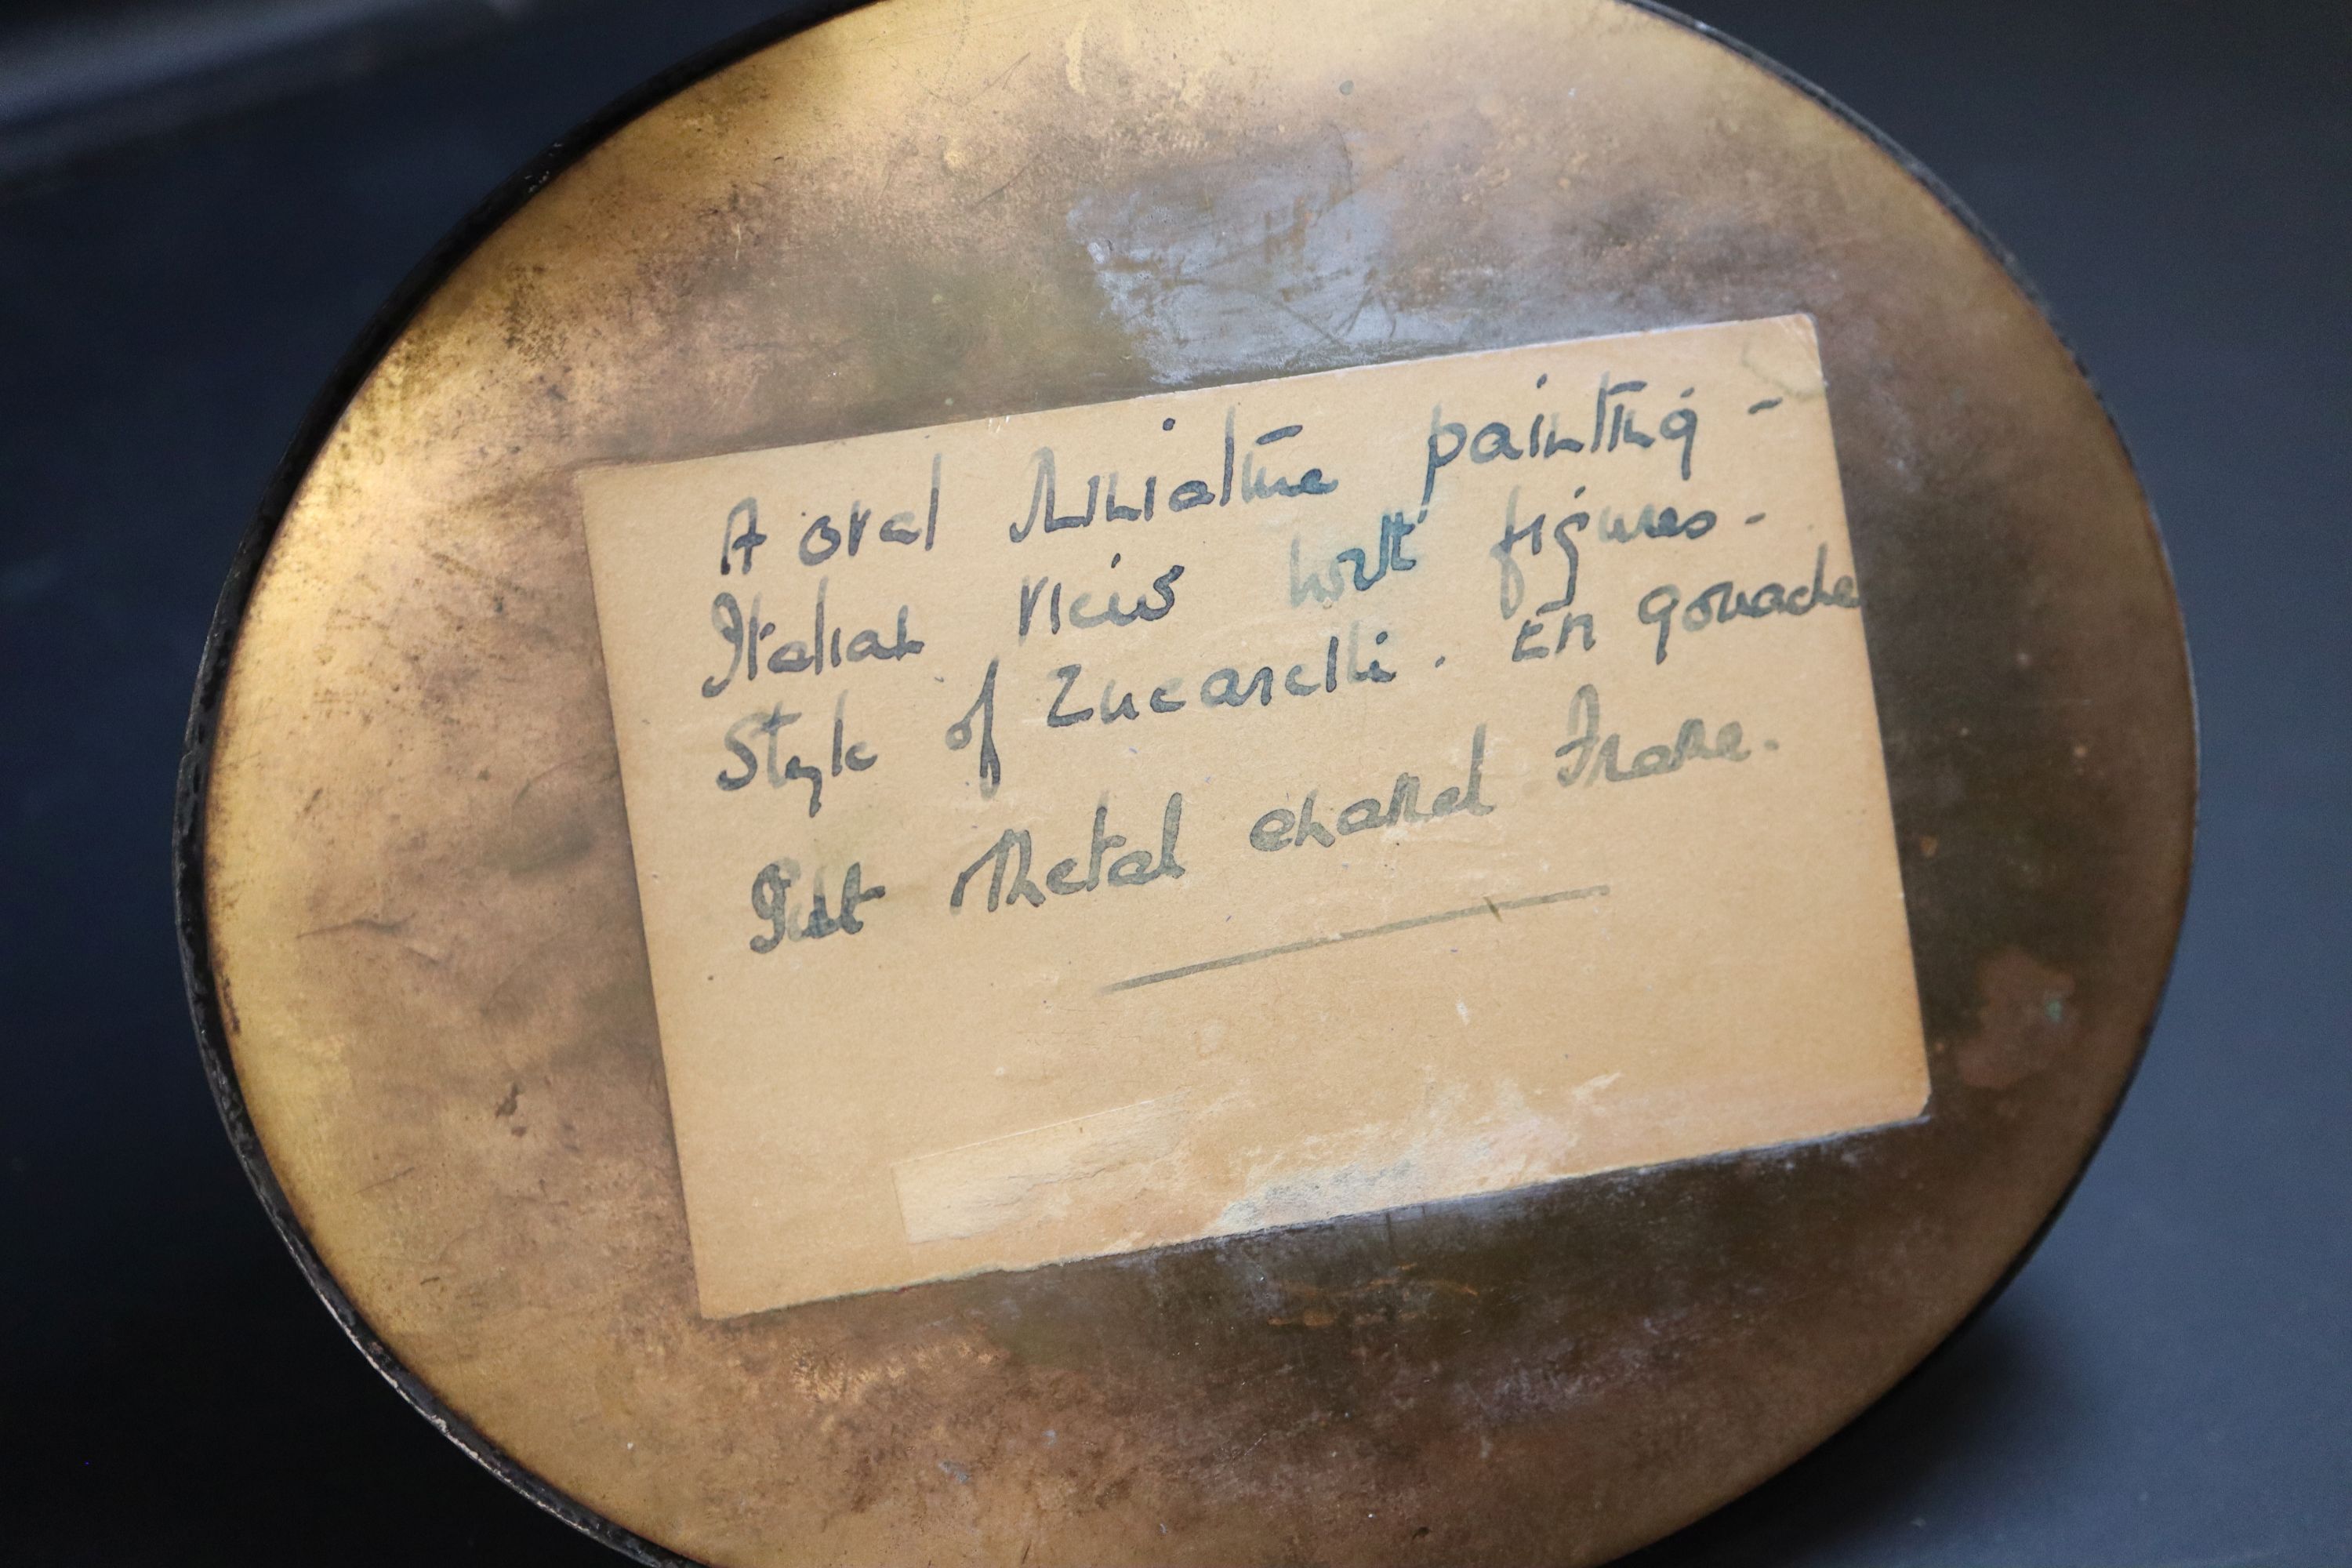 A oval Miniature painting -
Italian View with figures -
Style of Zucarelli . En gouache
Gilt Metal enamel Frame.